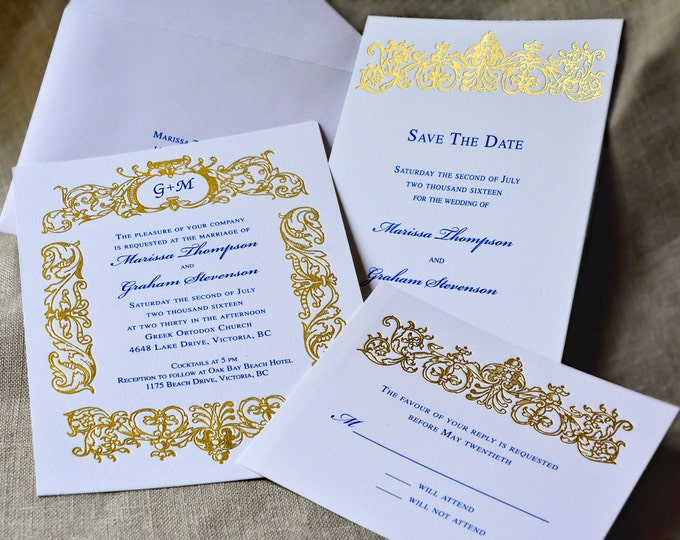 Marissa
G+M
The pleasure of your company
is requested at the marriage of
Marissa Thompson
and
Graham Stevenson
Saturday the second of July
two thousand sixteen
at two thirty in the afternoon
Greek Ortodox Church
4648 Lake Drive, Victoria, BC
Cocktails at 5 pm
Reception to follow at Oak Bay Beach Hotel
1175 Beach Drive, Victoria, BC
Save The Date
Saturday the second of July
two thousand sixteen
for the wedding of
Marissa Thompson
and
Graham Stevenson
The favour of your reply is requested
before May twentieth
M
will attend
will not attend